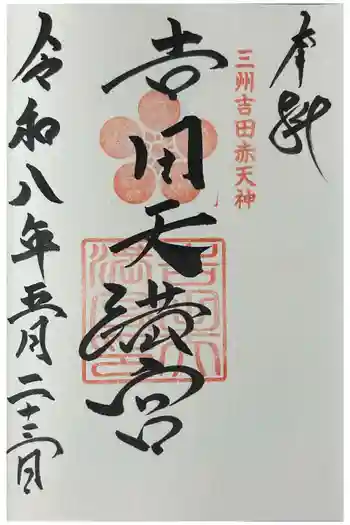 奉拝
三州吉田赤天神
吉田天満宮
令和八年五月二十三日